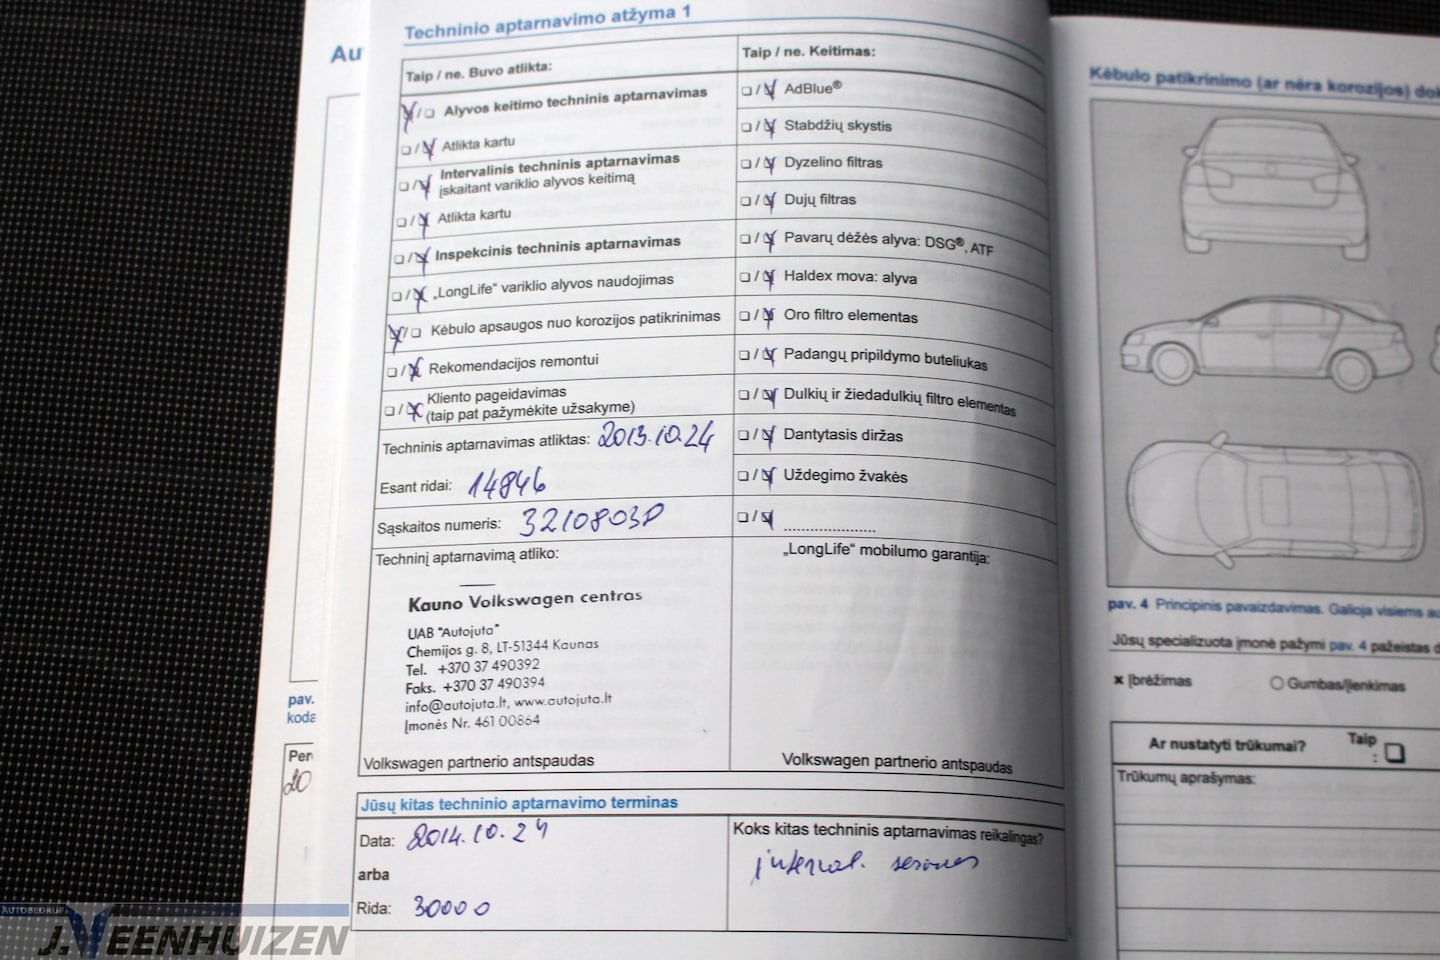 Techninio aptarnavimo atžyma 1
Taip / ne. Buvo atlikta:
Alyvos keitimo techninis aptarnavimas
Atlikta kartu
Intervalinis techninis aptarnavimas
įskaitant variklio alyvos keitimą
Atlikta kartu
Inspekcinis techninis aptarnavimas
„LongLife“ variklio alyvos naudojimas
Kėbulo apsaugos nuo korozijos patikrinimas
Rekomendacijos remontui
Kliento pageidavimas
(taip pat pažymėkite užsakyme)
Techninis aptarnavimas atliktas: 2013.10.24
Esant ridai: 14846
Sąskaitos numeris: 3210803P
Techninį aptarnavimą atliko:
Kauno Volkswagen centras
UAB "Autojuta"
Chemijos g. 8, LT-51344 Kaunas
Tel. +370 37 490392
Faks. +370 37 490394
info@autojuta.lt, www.autojuta.lt
Įmonės Nr. 461 00864
Volkswagen partnerio antspaudas
Taip / ne. Keitimas:
AdBlue®
Stabdžių skystis
Dyzelino filtras
Dujų filtras
Pavarų dėžės alyva: DSG®, ATF
Haldex mova: alyva
Oro filtro elementas
Padangų pripildymo buteliukas
Dulkių ir žiedadulkių filtro elementas
Dantytasis diržas
Uždegimo žvakės
„LongLife“ mobilumo garantija:
Volkswagen partnerio antspaudas
Jūsų kitas techninio aptarnavimo terminas
Data: 2014.10.24
arba
Rida: 30000
Koks kitas techninis aptarnavimas reikalingas?
interval.
Au
pav.
koda
Per
20
Kėbulo patikrinimo (ar nėra korozijos) dok
pav. 4 Principinis pavaizdavimas. Galioja visiems au
Jūsų specializuota įmonė pažymi pav. 4 pažeistas d
x Įbrėžimas
Gumbas/Įlenkimas
Ar nustatyti trūkumai? Taip
:
Trūkumų aprašymas:
AUTOBEDRIJF
J. VEENHUIZEN